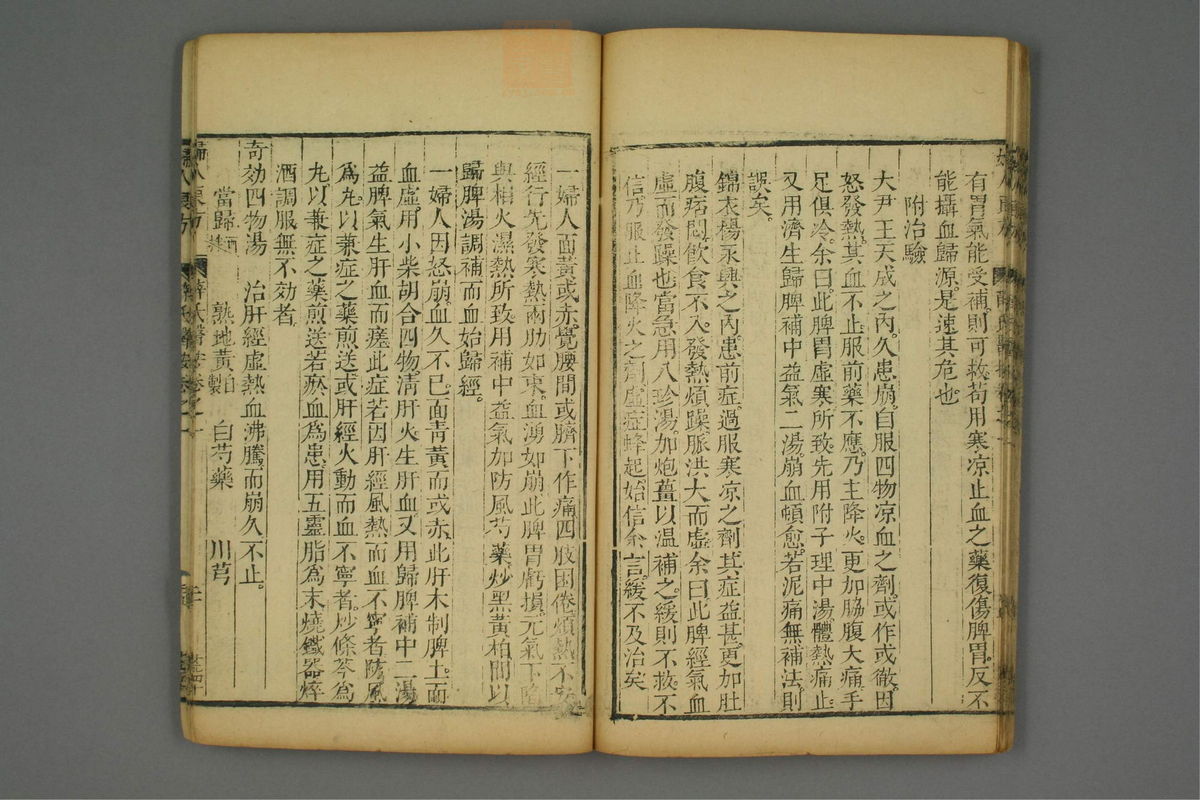 有胃氣能受補則可救苟用寒凉止血之藥復傷脾胃反不
能攝血歸源是速其危也
附治驗
大尹王天成之內久患崩自服四物凉血之劑或作或徹因
怒發熱其血不止服前藥不應乃主降火更加脇腹大痛手
足俱冷余曰此脾胃虛寒所致先用附子理中湯體熱痛止
又用濟生歸脾補中益氣二湯崩血頓愈若泥痛無補法則
誤矣
錦衣楊永興之內患前症過服寒凉之劑其症益甚更加肚
腹痞悶飲食不入發熱煩躁脈洪大而虛余曰此脾經氣血
虛而發躁也當急用八珍湯加炮薑以温補之緩則不救不
信乃服止血降火之劑虛症蜂起始信余言緩不及治矣
一婦人面黃或赤覺腰間或臍下作痛四肢困倦煩熱不安
經行先發寒熱兩肋如束血湧如崩此脾胃虧損元氣下陷
與相火濕熱所致用補中益氣加防風芍藥炒黑黃柏間以
歸脾湯調補而血始歸經
一婦人因怒崩血久不已面青黃而或赤此肝木制脾土而
血虛用小柴胡合四物清肝火生肝血又用歸脾補中二湯
益脾氣生肝血而瘥此症若因肝經風熱而血不寧者防風
爲丸以兼症之藥煎送或肝經火動而血不寧者炒條芩爲
丸以兼症之藥煎送若瘀血爲患用五靈脂爲末燒鐵器焠
酒調服無不効者
奇効四物湯　治肝經虛熱血沸騰而崩久不止
當歸酒　熟地黃自製　白芍藥　川芎
婦人良方　薛氏醫按卷之一